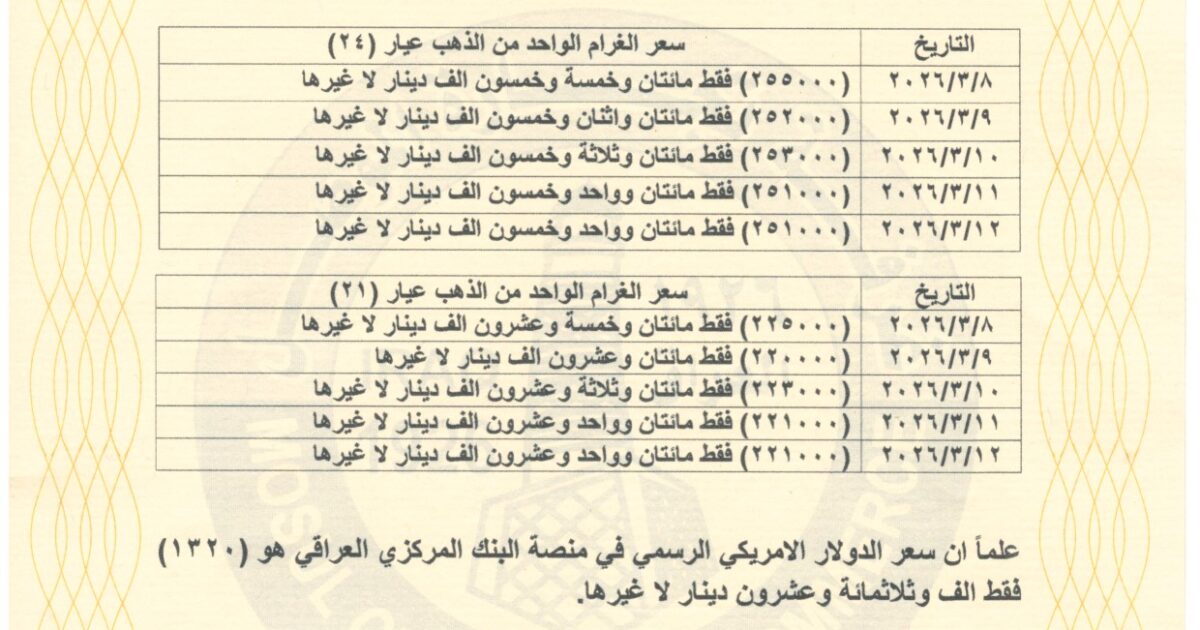 التاريخ سعر الغرام الواحد من الذهب عيار (٢٤)
٢٠٢٦/٣/٨ (٢٥٥٠٠٠) فقط مائتان وخمسة وخمسون الف دينار لا غيرها
٢٠٢٦/٣/٩ (٢٥٢٠٠٠) فقط مائتان واثنان وخمسون الف دينار لا غيرها
٢٠٢٦/٣/١٠ (٢٥٣٠٠٠) فقط مائتان وثلاثة وخمسون الف دينار لا غيرها
٢٠٢٦/٣/١١ (٢٥١٠٠٠) فقط مائتان وواحد وخمسون الف دينار لا غيرها
٢٠٢٦/٣/١٢ (٢٥١٠٠٠) فقط مائتان وواحد وخمسون الف دينار لا غيرها
التاريخ سعر الغرام الواحد من الذهب عيار (٢١)
٢٠٢٦/٣/٨ (٢٢٥٠٠٠) فقط مائتان وخمسة وعشرون الف دينار لا غيرها
٢٠٢٦/٣/٩ (٢٢٠٠٠٠) فقط مائتان وعشرون الف دينار لا غيرها
٢٠٢٦/٣/١٠ (٢٢٣٠٠٠) فقط مائتان وثلاثة وعشرون الف دينار لا غيرها
٢٠٢٦/٣/١١ (٢٢١٠٠٠) فقط مائتان وواحد وعشرون الف دينار لا غيرها
٢٠٢٦/٣/١٢ (٢٢١٠٠٠) فقط مائتان وواحد وعشرون الف دينار لا غيرها
علماً ان سعر الدولار الامريكي الرسمي في منصة البنك المركزي العراقي هو (١٣٢٠)
فقط الف وثلاثمائة وعشرون دينار لا غيرها.